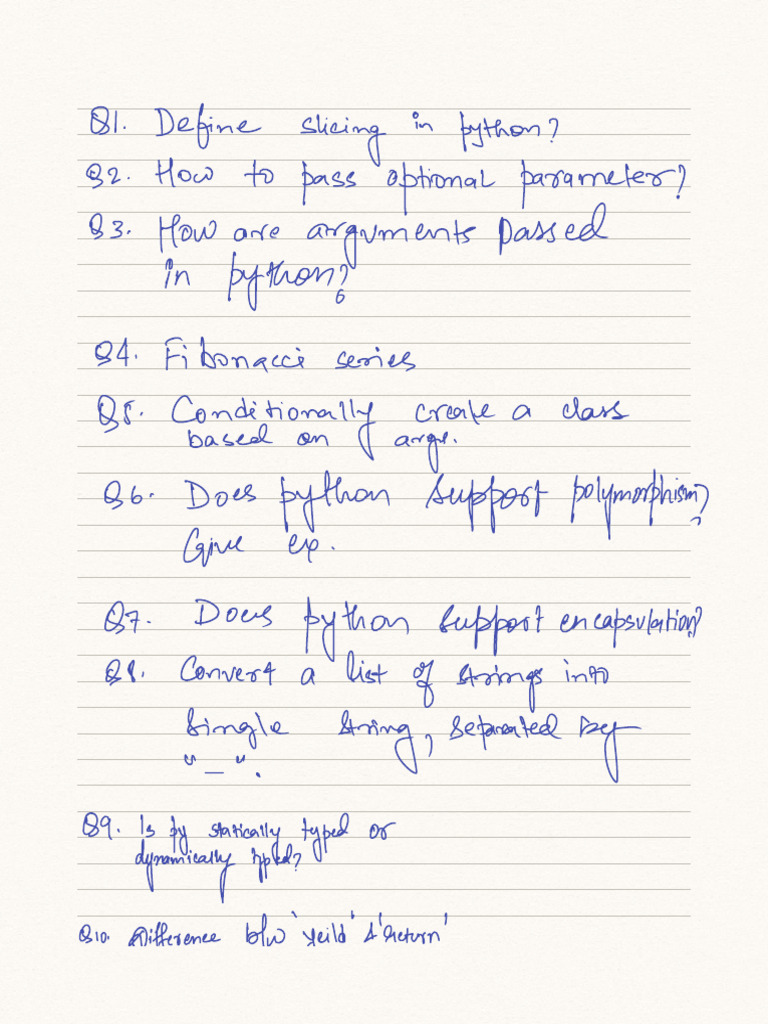 Q1. Define slicing in python?
Q2. How to pass optional parameter?
Q3. How are arguments passed
in python?
Q4. Fibonacci series
Q5. Conditionally create a class
based on args.
Q6. Does python support polymorphism?
Give ex.
Q7. Does python support encapsulation?
Q8. Convert a list of strings into
single string, separated by
"_".
Q9. Is py statically typed or
dynamically typed?
Q10. Difference b/w 'Yeild' & 'return'